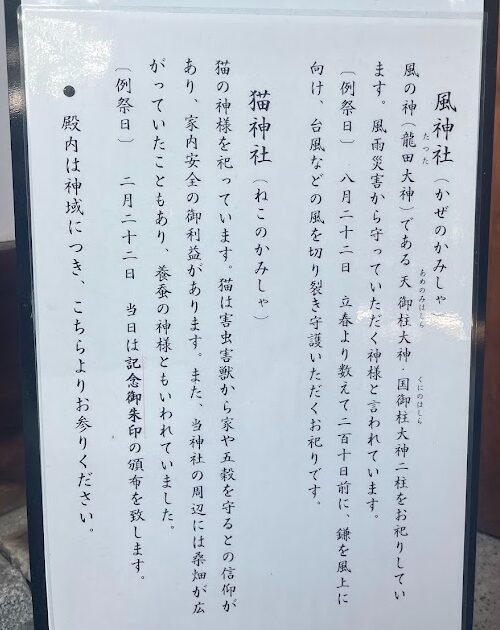 風神社（かぜのかみしゃ）
風の神（龍田大神）である天御柱大神・国御柱大神二柱をお祀りしてい
たつた
あめのみはしら
くにのはしら
ます。風雨災害から守っていただく神様と言われています。
〔例祭日〕　八月二十二日　立春より数えて二百十日前に、鎌を風上に
向け、台風などの風を切り裂き守護いただくお祀りです。
猫神社（ねこのかみしゃ）
猫の神様を祀っています。猫は害虫害獣から家や五穀を守るとの信仰が
あり、家内安全の御利益があります。また、当神社の周辺には桑畑が広
がっていたこともあり、養蚕の神様ともいわれていました。
〔例祭日〕　二月二十二日　当日は記念御朱印の頒布を致します。
●　殿内は神域につき、こちらよりお参りください。